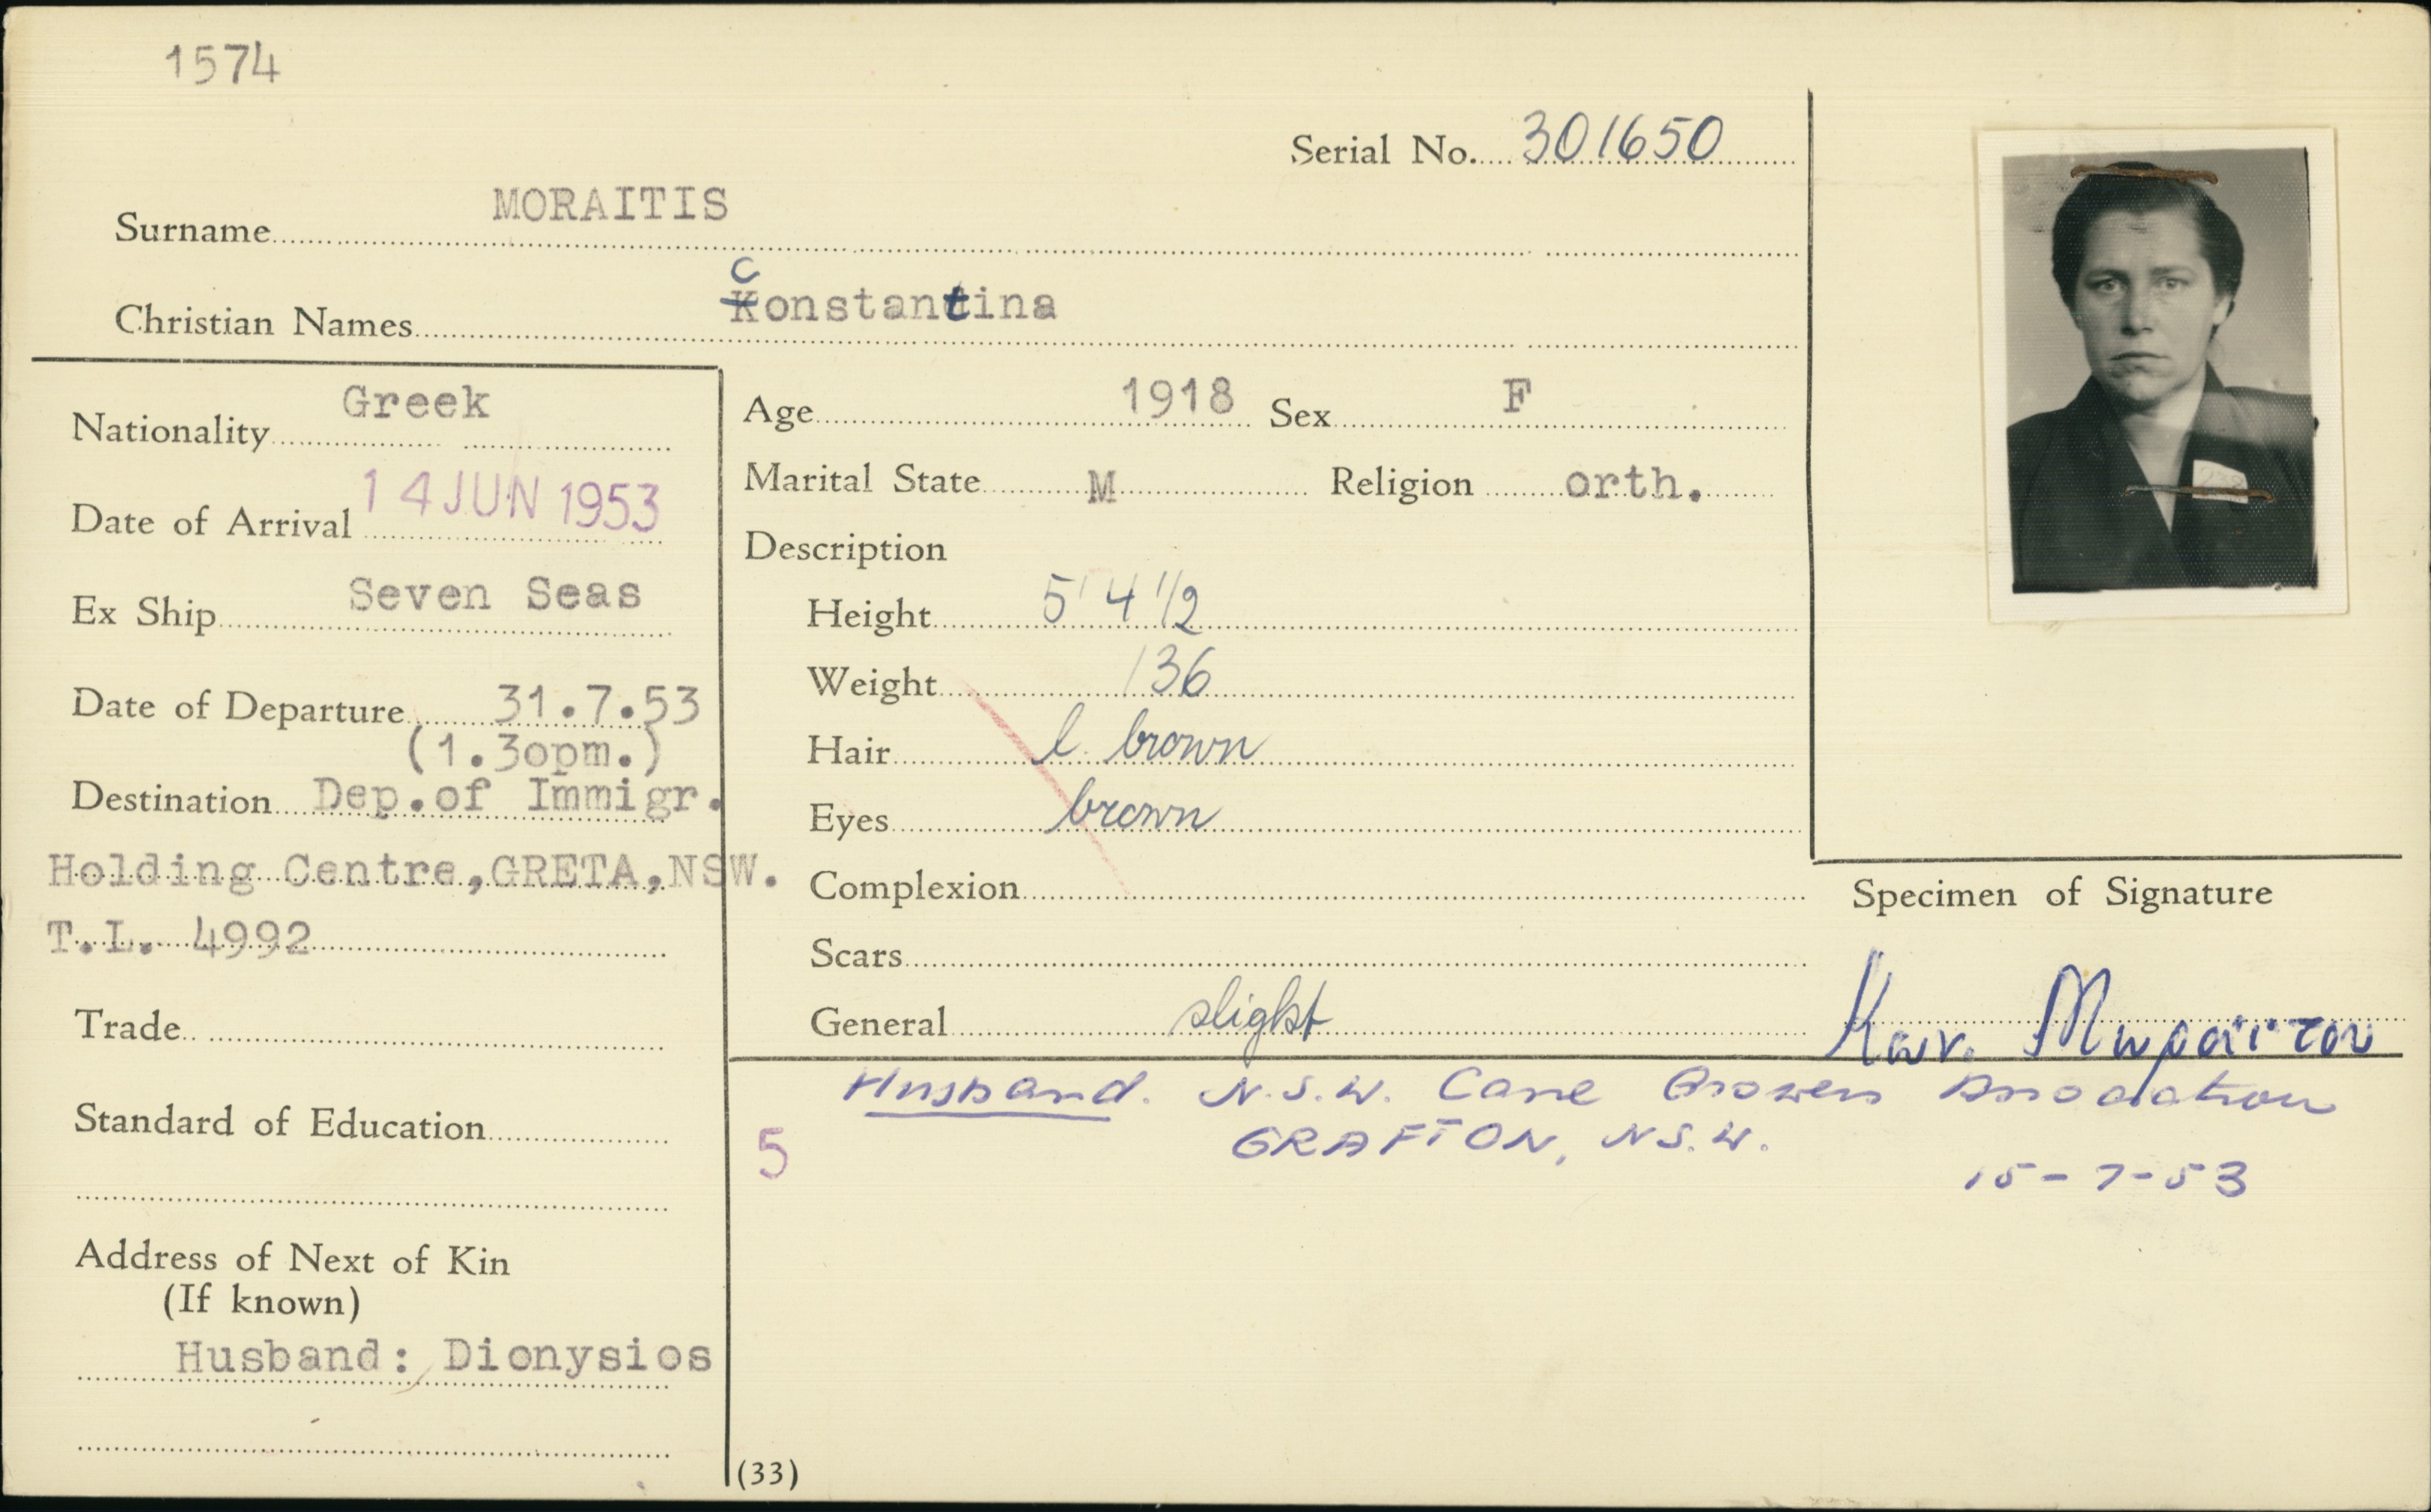 1574
Serial No. 301650
Surname MORAITIS
C
Christian Names Konstantina
Nationality Greek
Date of Arrival 14 JUN 1953
Ex Ship Seven Seas
Date of Departure 31.7.53
(1.3opm.)
Destination Dep.of Immigr.
Holding Centre,GRETA,NSW.
T.L. 4992
Trade
Standard of Education
Address of Next of Kin
(If known)
Husband: Dionysios
Age 1918 Sex F
Marital State M Religion orth.
Description
Height 5' 4 1/2
Weight 136
Hair l. brown
Eyes brown
Complexion
Scars
General slight
Specimen of Signature
Κων. Μωραΐτου
Husband. N.S.W. Cane Growers Association
GRAFTON, N.S.W.
15-7-53
5
(33)